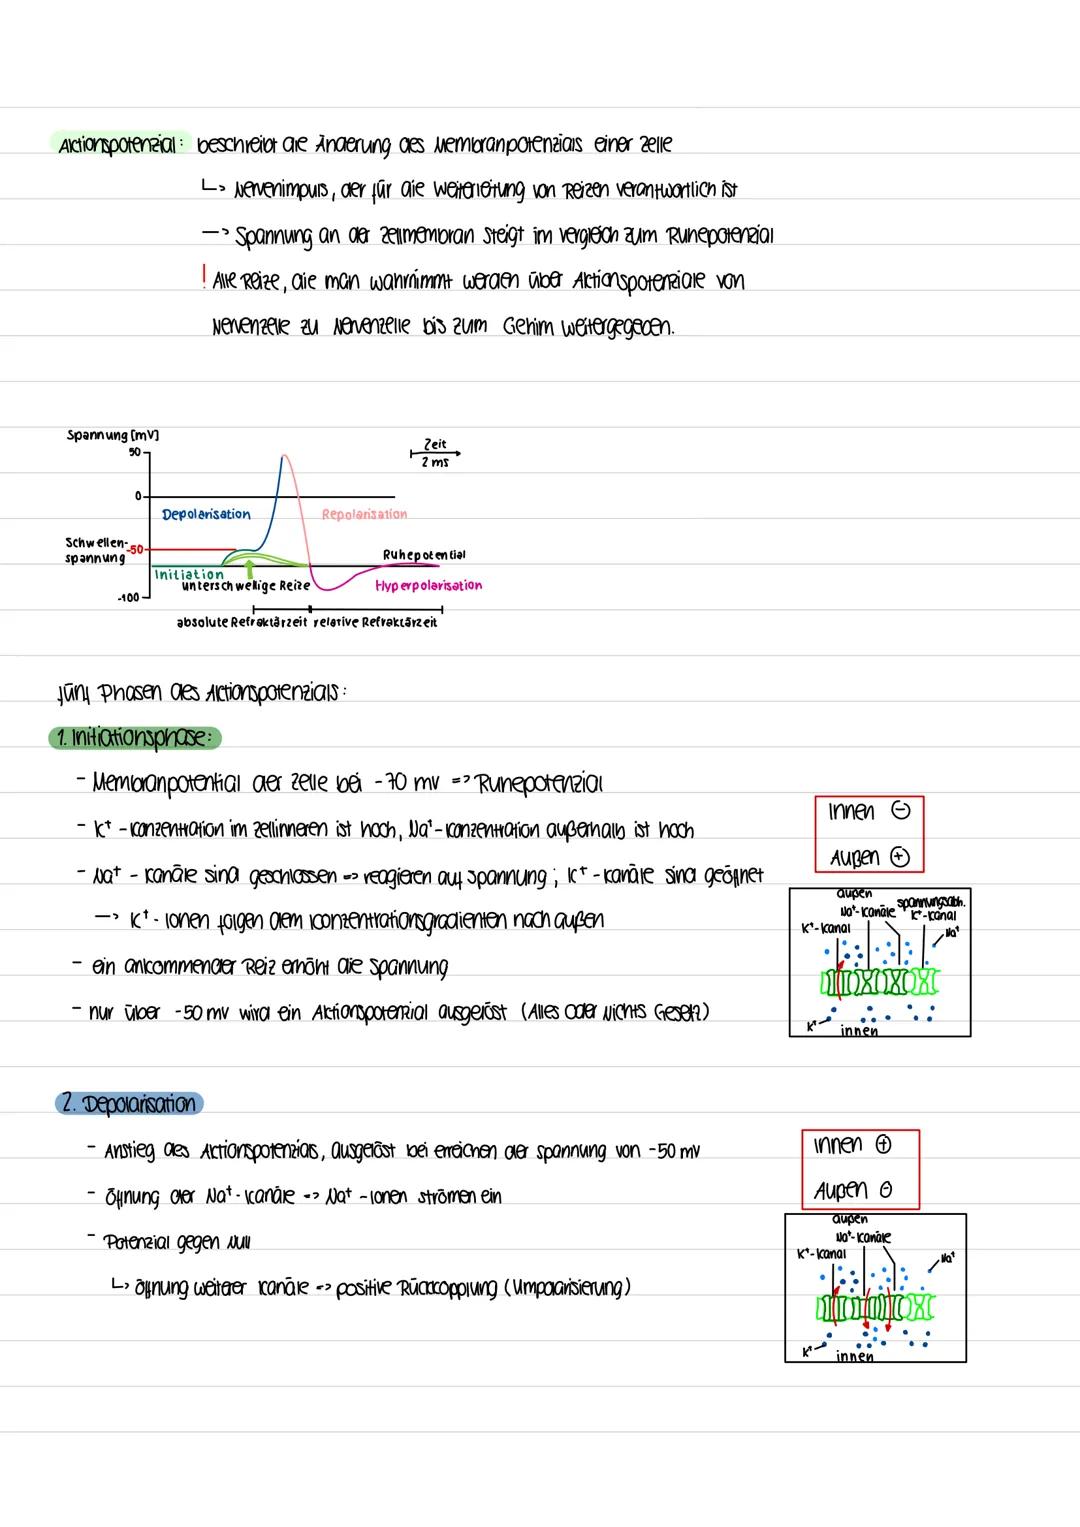 Aktionspotenzial: beschreibt die Änderung des Membranpotenzials einer Zelle
↳ Nervenimpuls, der für die Weiterleitung von Reizen verantwortlich ist
-> Spannung an der Zellmembran steigt im vergleich zum Ruhepotenzial
! Alle Reize, die man wahrnimmt werden über Aktionspotenziale von
Nervenzelle zu Nervenzelle bis zum Gehirn weitergegeben.
Spannung [mV]
50
Zeit
2 ms
0
Depolarisation
Repolarisation
Schwellen-
spannung
-50
Ruhepotential
Initiation
unterschwellige Reize
Hyperpolarisation
-100
absolute Refraktärzeit relative Refraktärzeit
fünf Phasen des Aktionspotenzials:
1. Initiationsphase:
- Membranpotential der Zelle bei -70 mv => Ruhepotenzial
- K⁺ - Konzentration im Zellinneren ist hoch, Na⁺ - Konzentration außerhalb ist hoch
- Na⁺ - Kanäle sind geschlossen => reagieren auf Spannung ; K⁺ - Kanäle sind geöffnet
-> K⁺ - Ionen folgen dem Konzentrationsgradienten nach außen
- ein ankommender Reiz erhöht die Spannung
- nur über -50 mv wird ein Aktionspotenzial ausgelöst (Alles oder Nichts Gesetz)
Innen ⊖
Außen ⊕
außen
Na⁺-Kanäle
spannungsabh.
K⁺-Kanal
K⁺-Kanal
Na⁺
K⁺
innen
2. Depolarisation
- Anstieg des Aktionspotenzials, ausgelöst bei erreichen der spannung von -50 mv
- Öffnung der Na⁺ - Kanäle -> Na⁺ - Ionen strömen ein
- Potenzial gegen Null
↳ öffnung weiterer Kanäle => positive Rückkopplung (Umpolarisierung)
innen ⊕
Außen ⊖
außen
Na⁺-Kanäle
K⁺-Kanal
Na⁺
K⁺
innen